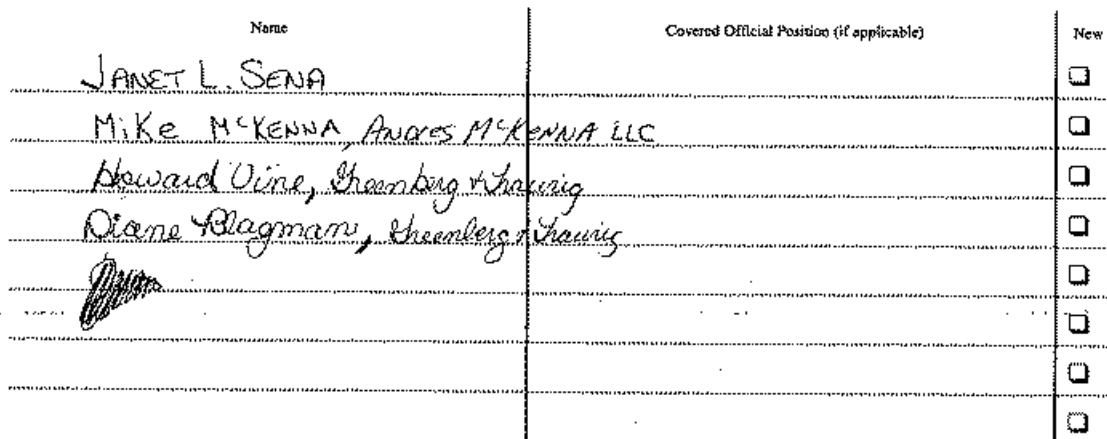 Name Covered Official Position (if applicable) New
JANET L. SENA
MiKe McKENNA, ANDRES McKENNA LLC
Howard Vine, Greenberg & Traurig
Diane Blagman, Greenberg & Traurig